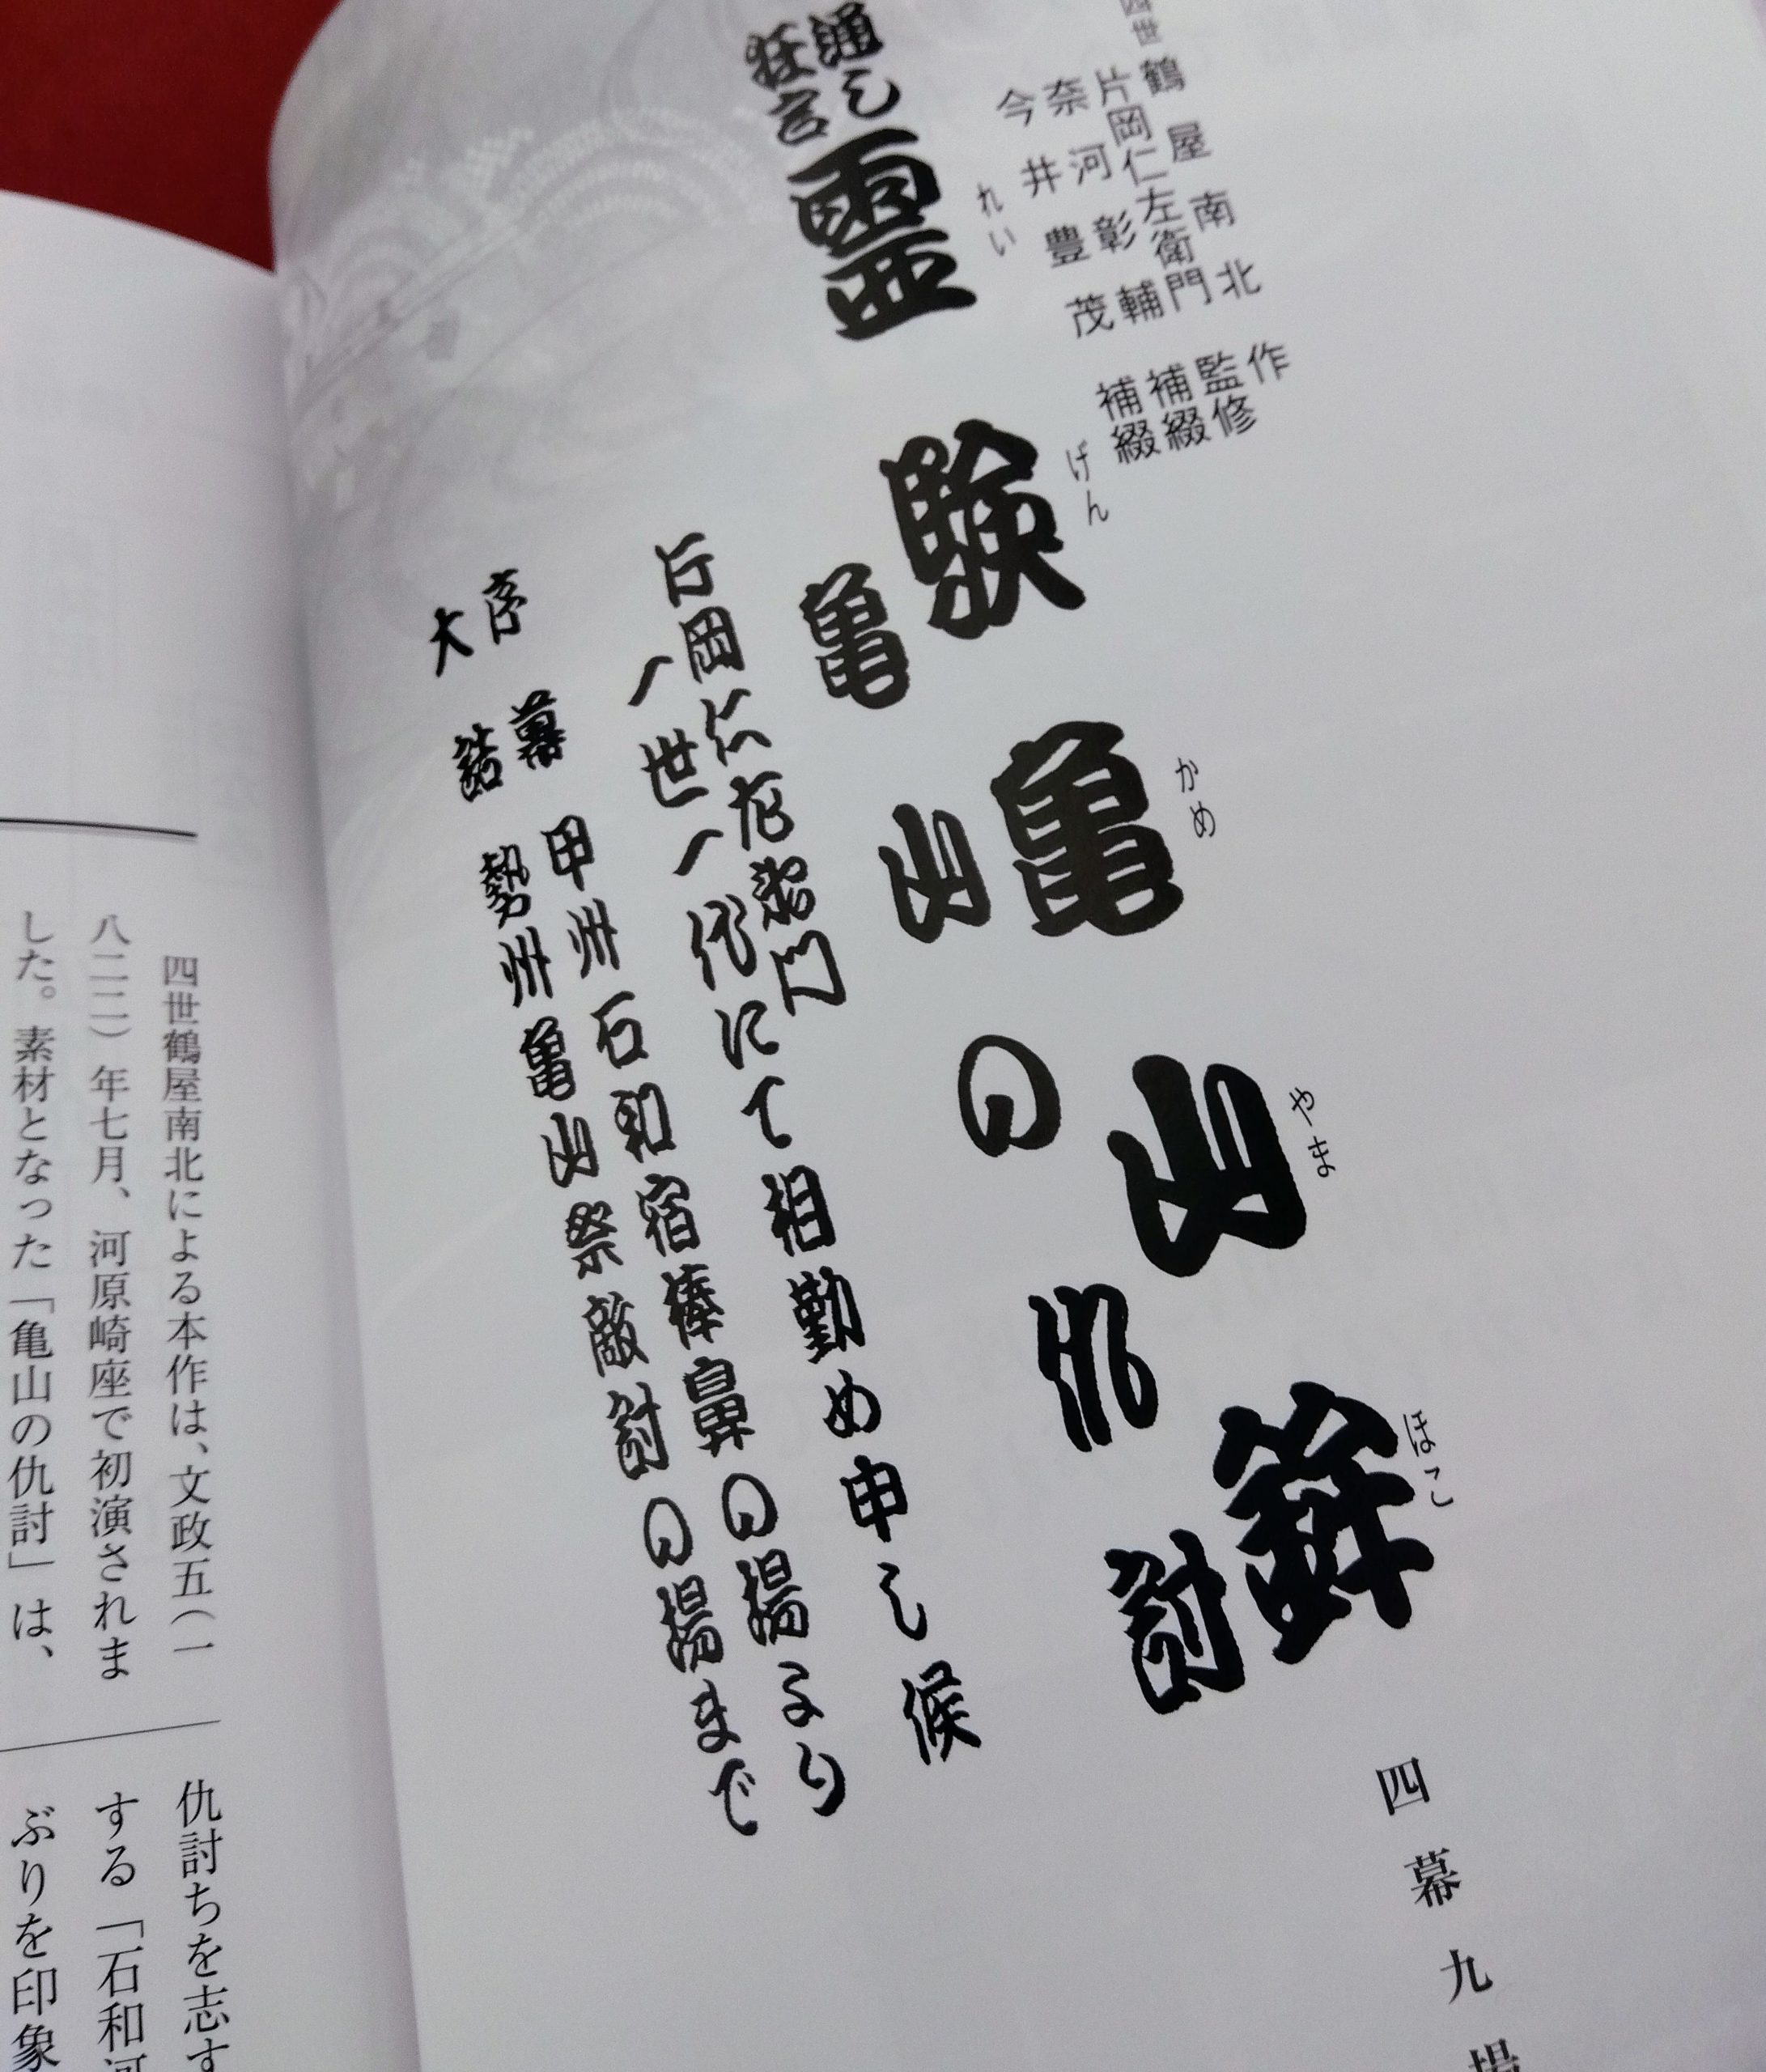 四世 鶴屋南北 作
片岡仁左衛門 監修
奈河彰輔 補綴
今井豊茂 補綴
通し
狂言
霊験亀山鉾
れいげんかめやまほこ
四幕九場
亀山の仇討
片岡仁左衛門
一世一代にて相勤め申し候
序幕 甲州石和宿棒鼻の場より
大詰 勢州亀山祭敵討の場まで
四世鶴屋南北による本作は、文政五(一
八二二)年七月、河原崎座で初演されま
した。素材となった「亀山の仇討」は、
仇討ちを志す
する「石和河
ぶりを印象